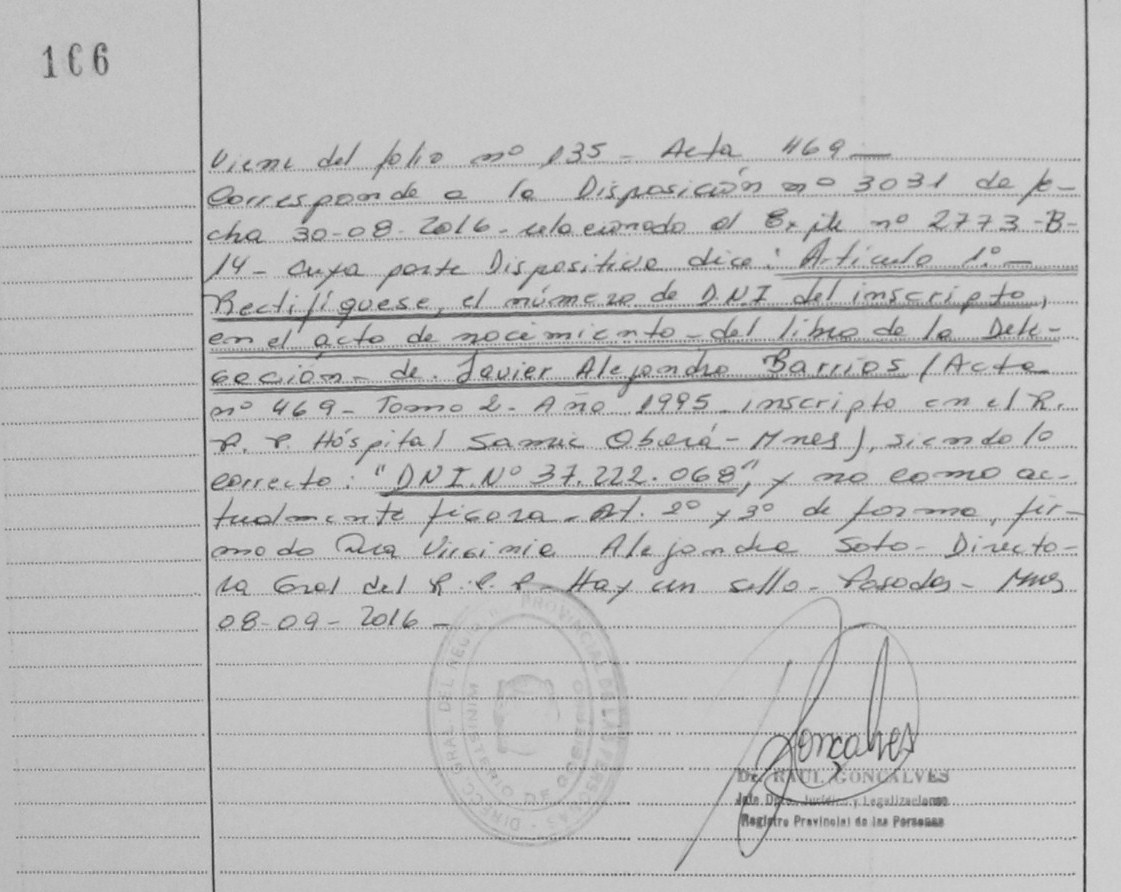 166
Viene del folio nº 135 - Acta 469 —
Corresponde a la Disposición nº 3031 de fe-
cha 30-08-2016- relacionado al Expte nº 2773-B-
14- cuya parte Dispositiva dice: Artículo 1º —
Rectifíquese, el número de D.N.I del inscripto,
en el acta de nacimiento - del libro de la Dele-
gación - de. Javier Alejandro Barrios (Acta
nº 469 - Tomo 2 - Año 1995 - inscripto en el R.
P. P. Hóspital Samic Oberá - Mnes), siendo lo
correcto: "DNI. Nº 37.222.068", y no como ac-
tualmente figura - At. 2º y 3º de forma, fir-
mado Dra Virginia Alejandra Soto - Directo-
ra Gral del R. P. P. Hay un sello - Posadas - Mnes
08-09-2016 -
DIRECC. GRAL. DEL REG. PROVINCIAL DE LAS PERSONAS
MINISTERIO DE GOBIERNO
Gonçalves
Dr. RAUL GONÇALVES
Jefe Dpto. Jurídico y Legalizaciones
Registro Provincial de las Personas